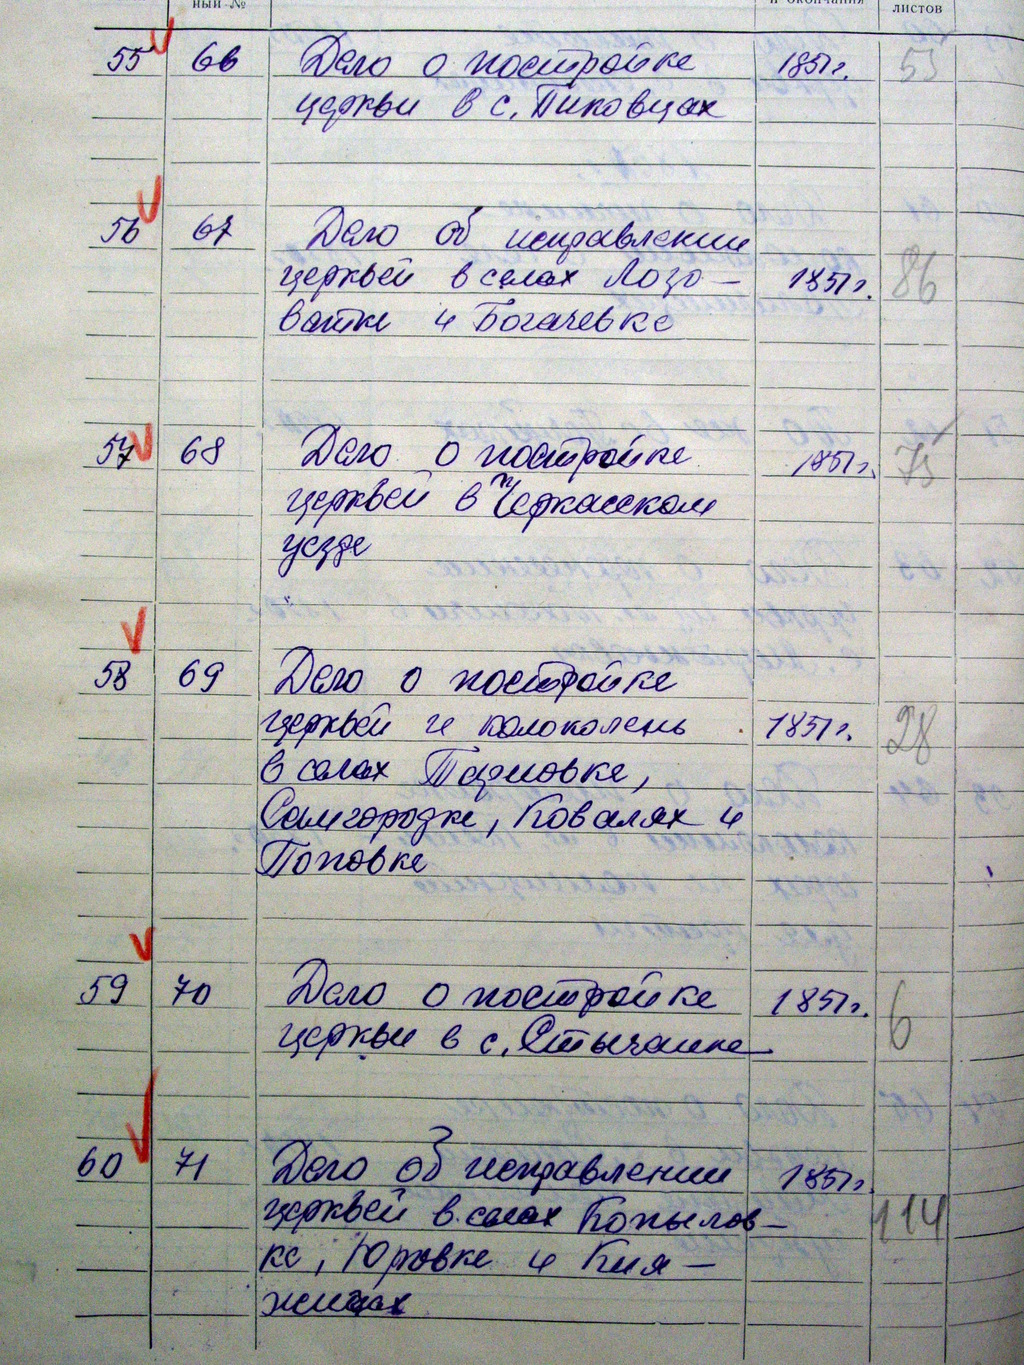 ный № и окончания листов
55 66 Дело о постройке 1851 г. 53
церкви в с. Пиковцах
56 67 Дело об исправлении
церквей в селах Лозо- 1851 г. 86
ватке и Богачевке
57 68 Дело о постройке 1851 г. 75
церквей в Черкасском
уезде
58 69 Дело о постройке
церквей и колоколень 1851 г. 28
в селах
Самгородке, Ковалях и
Поповке
59 70 Дело о постройке 1851 г. 6
церкви в с.
60 71 Дело об исправлении 1851 г.
церквей в селах Копылов- 114
ке, Юровке и Кня-
жицах